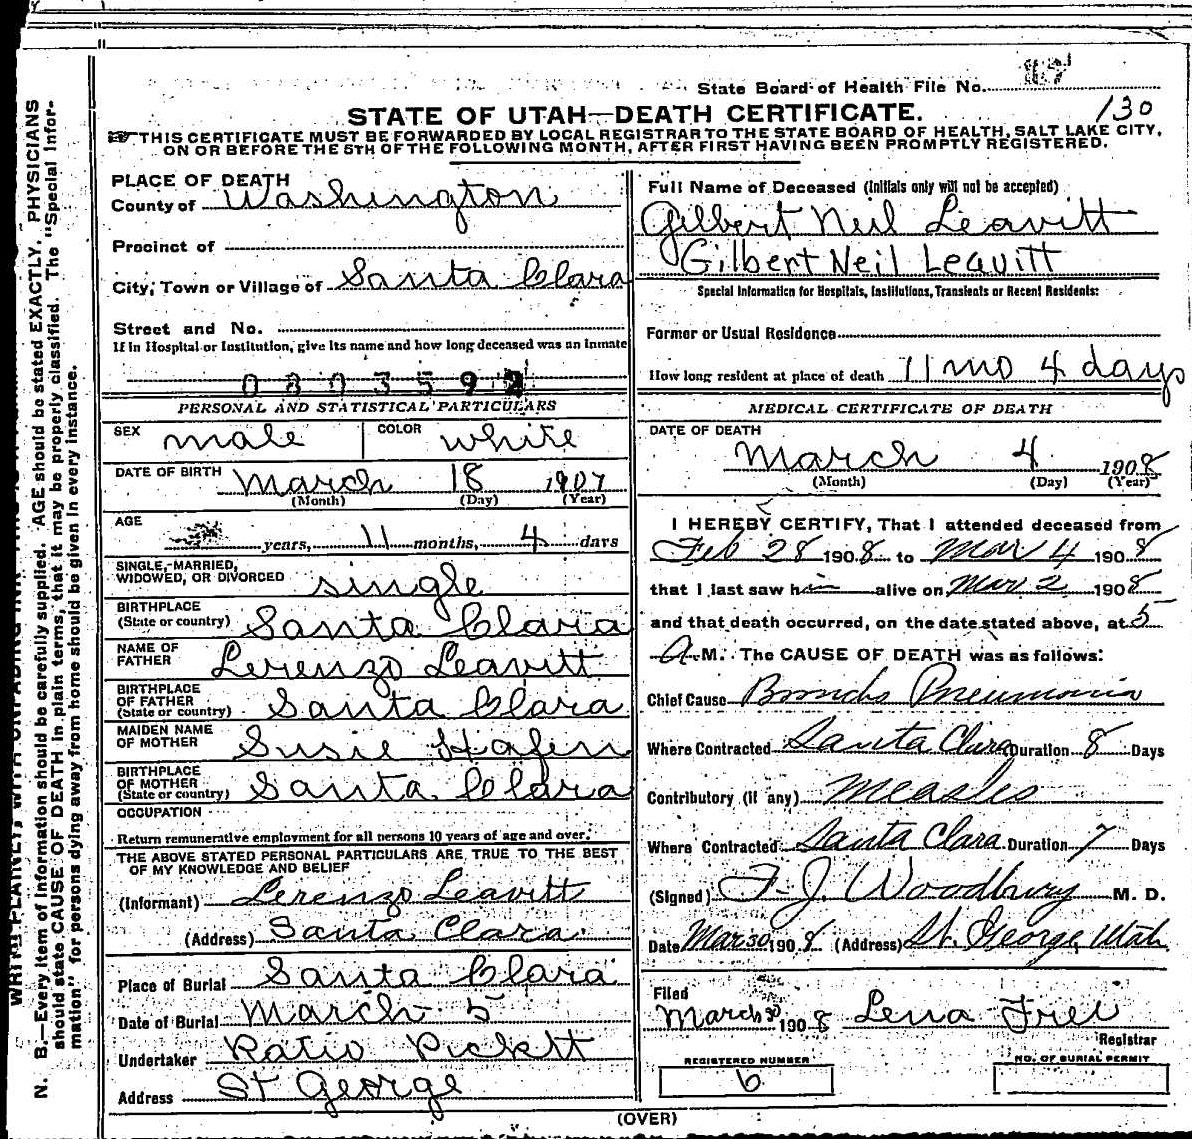 State Board of Health File No.
130
STATE OF UTAH—DEATH CERTIFICATE.
THIS CERTIFICATE MUST BE FORWARDED BY LOCAL REGISTRAR TO THE STATE BOARD OF HEALTH, SALT LAKE CITY,
ON OR BEFORE THE 5TH OF THE FOLLOWING MONTH, AFTER FIRST HAVING BEEN PROMPTLY REGISTERED.
PLACE OF DEATH
County of Washington
Precinct of
City, Town or Village of Santa Clara
Street and No.
If in Hospital or Institution, give its name and how long deceased was an inmate
PERSONAL AND STATISTICAL PARTICULARS
SEX male COLOR white
DATE OF BIRTH March 18 1907
(Month) (Day) (Year)
AGE years, 11 months, 4 days
SINGLE, MARRIED,
WIDOWED, OR DIVORCED single
BIRTHPLACE
(State or country) Santa Clara
NAME OF
FATHER Lerenzo Leavitt
BIRTHPLACE
OF FATHER
(State or country) Santa Clara
MAIDEN NAME
OF MOTHER Susie Hafen
BIRTHPLACE
OF MOTHER
(State or country) Santa Clara
OCCUPATION
Return remunerative employment for all persons 10 years of age and over.
THE ABOVE STATED PERSONAL PARTICULARS ARE TRUE TO THE BEST
OF MY KNOWLEDGE AND BELIEF
(Informant) Lerenzo Leavitt
(Address) Santa Clara
Place of Burial Santa Clara
Date of Burial March 5
Undertaker Ratio Pickett
Address St George
Full Name of Deceased (Initials only will not be accepted)
Gilbert Neil Leavitt
Gilbert Neil Leavitt
Special Information for Hospitals, Institutions, Transients or Recent Residents:
Former or Usual Residence
How long resident at place of death 11 mo 4 days
MEDICAL CERTIFICATE OF DEATH
DATE OF DEATH
March 4 1908
(Month) (Day) (Year)
I HEREBY CERTIFY, That I attended deceased from
Feb 28 1908 to Mar 4 1908
that I last saw him alive on Mar 2 1908
and that death occurred, on the date stated above, at 5
A M. The CAUSE OF DEATH was as follows:
Chief Cause Broncho Pneumonia
Where Contracted Santa Clara Duration 8 Days
Contributory (if any) Measles
Where Contracted Santa Clara Duration 7 Days
(Signed) F. J. Woodbury M. D.
Date Mar 30 1908 (Address) St. George, Utah
Filed
March 30 1908 Lena Frei
Registrar
REGISTERED NUMBER
6
NO. OF BURIAL PERMIT
(OVER)
N. B.—Every item of information should be carefully supplied. AGE should be stated EXACTLY. PHYSICIANS
should state CAUSE OF DEATH in plain terms, that it may be properly classified. The "Special Infor-
mation" for persons dying away from home should be given in every instance.